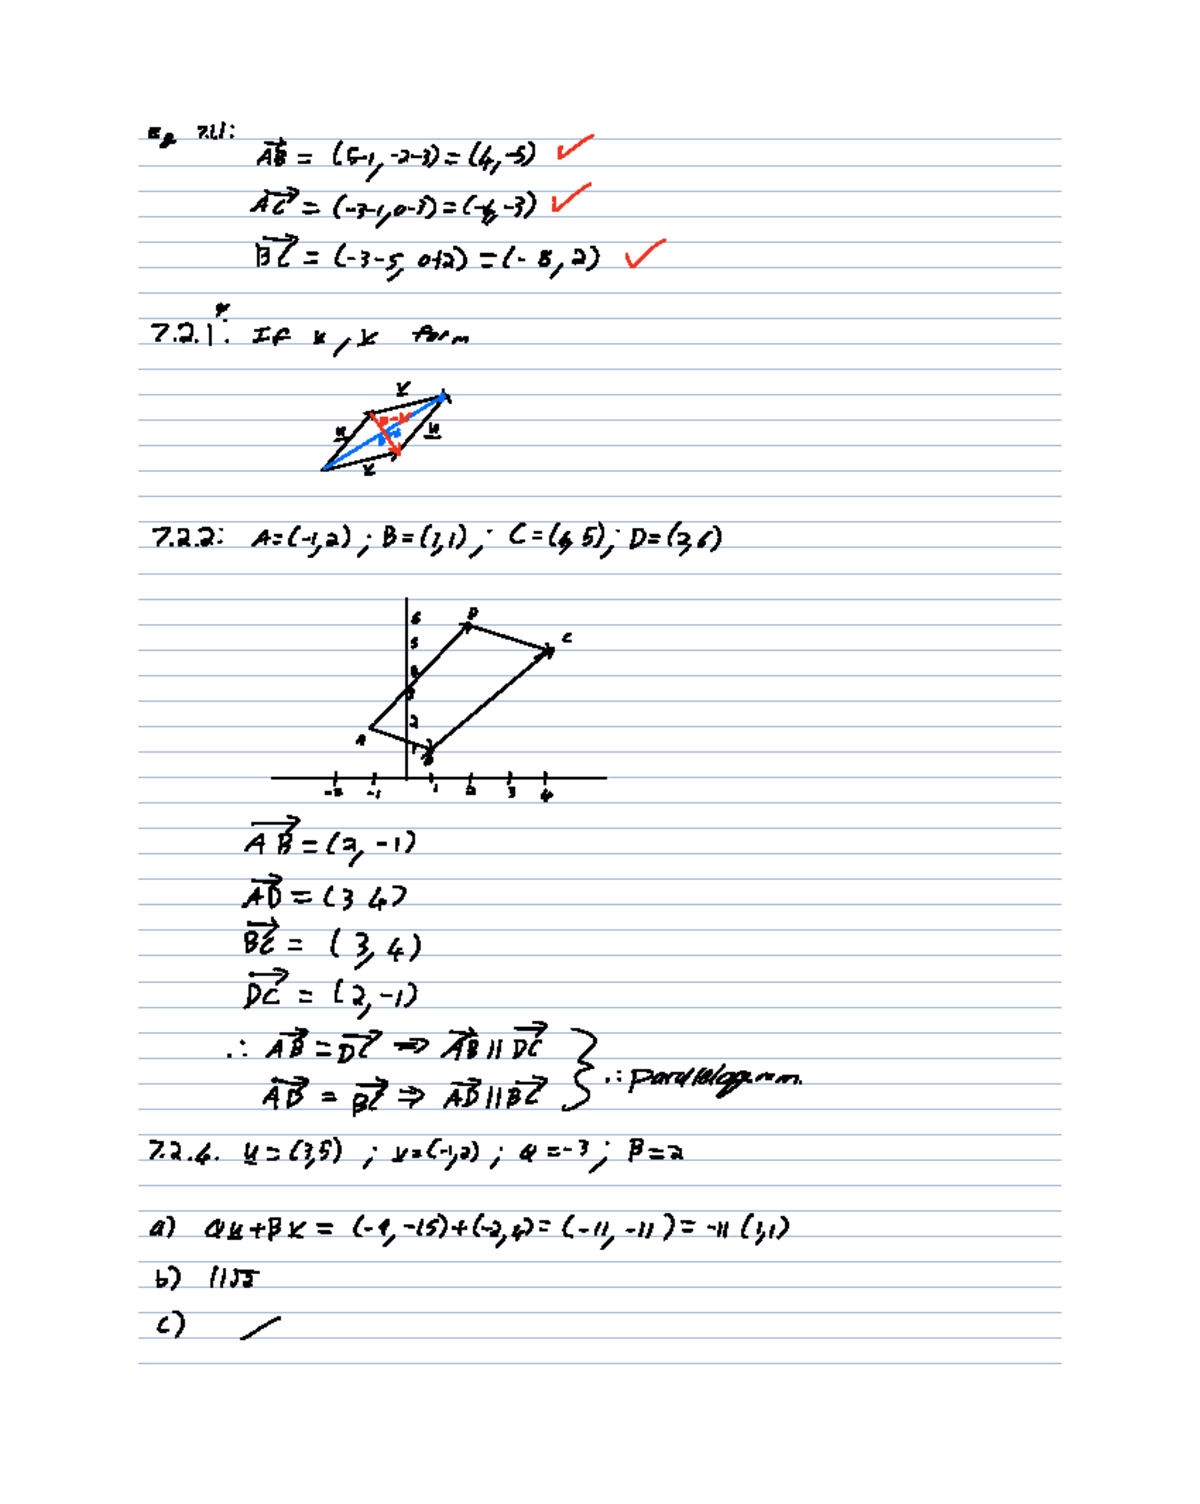 Eg 7.1.1:
AB = (5-1, -2-3) = (4, -5) ✓
AC = (-3-1, 0-3) = (-4, -3) ✓
BC = (-3-5, 0+2) = (-8, 2) ✓
7.2.1: If u, v form
v
u
u
v
7.2.2: A=(-1,2) ; B=(1,1) ; C=(4,5); D=(2,6)
6
D
5
C
4
3
2
A
1
B
-2 -1 1 2 3 4
AB = (2, -1)
AD = (3 4)
BC = (3, 4)
DC = (2, -1)
∴ AB = DC ⇒ AB || DC
AD = BC ⇒ AD || BC } ∴ parallelogram.
7.2.4. u = (3,5) ; v = (-1,2) ; α = -3 ; B = 2
a) αu + Bv = (-9, -15) + (-2, 4) = (-11, -11) = -11 (1,1)
b) 11√2
c)